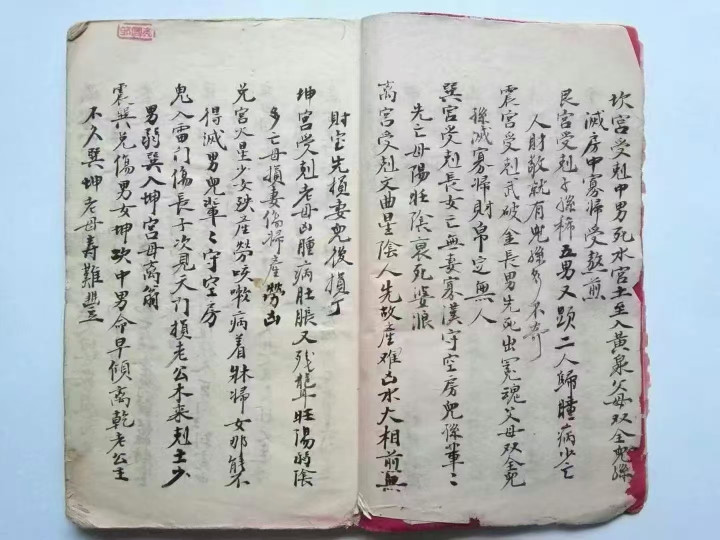 坎宫受剋中男死水宫土至入黄泉父母双全兒孫
滅房中寡婦受熬煎
艮宫受剋子孫稀五男又跟二人歸瞳病少亡
人財敗就有兒孫多不奇
震宫受剋武破金長男先死出冤魂父母双全兒
孫滅寡婦財帛定無人
巽宫受剋長女亡無妻寡漢守空房兒孫輩〻
先亡母陽旺陰衰死婆浪
离宫受剋文曲星陰人先故産难凶水火相煎無
財宝先損妻兒後損丁
坤宫受剋老母凶腫病肚脹又残聾旺陽弱陰
多亡母損妻傷婦産勞凶
兑宫火星少女殀産勞咳嗽病着牀婦女那能不
得滅男兒輩〻守空房
鬼入雷門傷長子次見天門損老公木来剋土少
男弱巽入坤宫母离翁
震巽兑傷男女坤坎中男命早傾离乾老公主
不久巽坤老母寿難豊